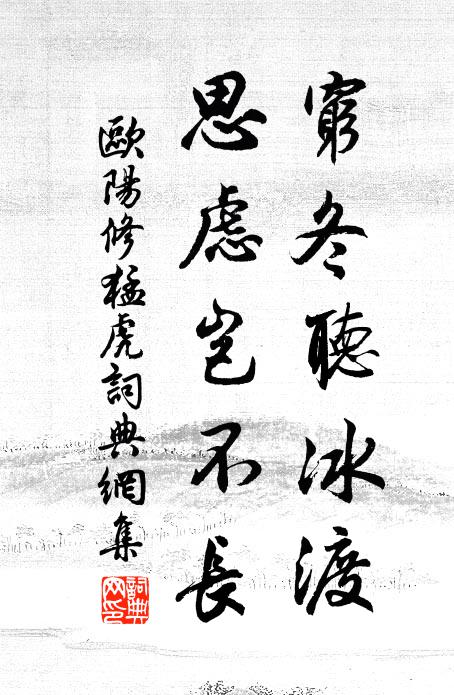 窮冬聽冰渡
思慮豈不長
歐陽修猛虎詞典網集
詞典網印